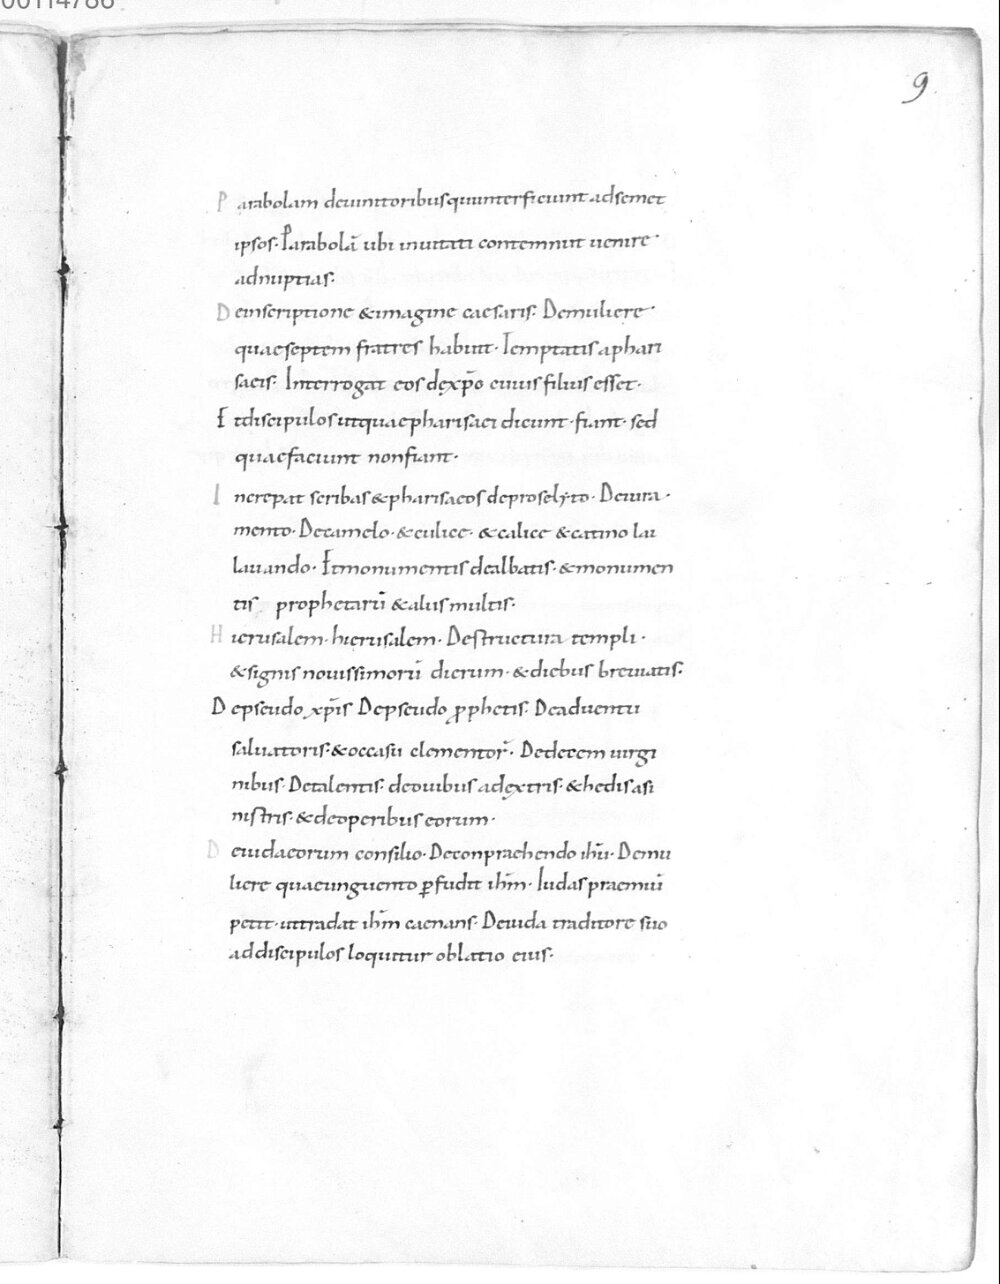 00114786
9
Parabolam deuinitoribus quiinterficiunt adsemet
ipsos. Parabolā ubi inuitati contemnunt uenire
adnuptias.
Deinscriptione &imagine caesaris. Demuliere
quaeseptem fratres habuit. Temptatis aphari
saeis. Interrogat eos dexp̄o cuius filius esset.
Etdiscipulos utquae pharisaei dicunt. fiant. sed
quaefaciunt nonfiant.
Increpat scribas &pharisaeos deproselyto. Deiura
mento. Decamelo. &culice. &calice &catino lau
lauando. Etmonumentis dealbatis. &monumen
tis prophetarū &aliis multis.
Hierusalem. hierusalem. Destructura templi.
&signis nouissimorū dierum. &diebus breuiatis.
Depseudo xp̄is Depseudo ꝓphetis. Deaduentu
saluatoris. &occasu elementor̄. Dedecem uirgi
nibus. Detalentis. deouibus adextris. &hedis asi
nistris. &deoperibus eorum.
Deiudaeorum consilio. Deconpraehendo ihū. Demu
liere quaeunguento ꝑfudit ihm̄. Iudas praemiū
petit. uttradat ihm̄ caenans. Deiuda traditore suo
addiscipulos loquitur oblatio eius.